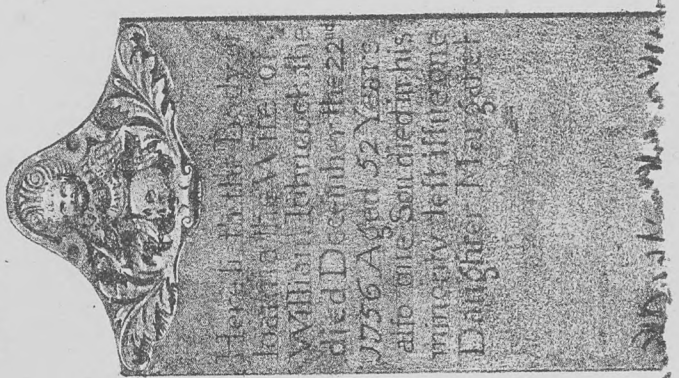 Here lyeth the Body of
Joanna the Wife of
William Johncock she
died December the 22nd
1756 Aged 52 Years
alſo one Son died in his
minority left iſſue one
Daughter Margaret